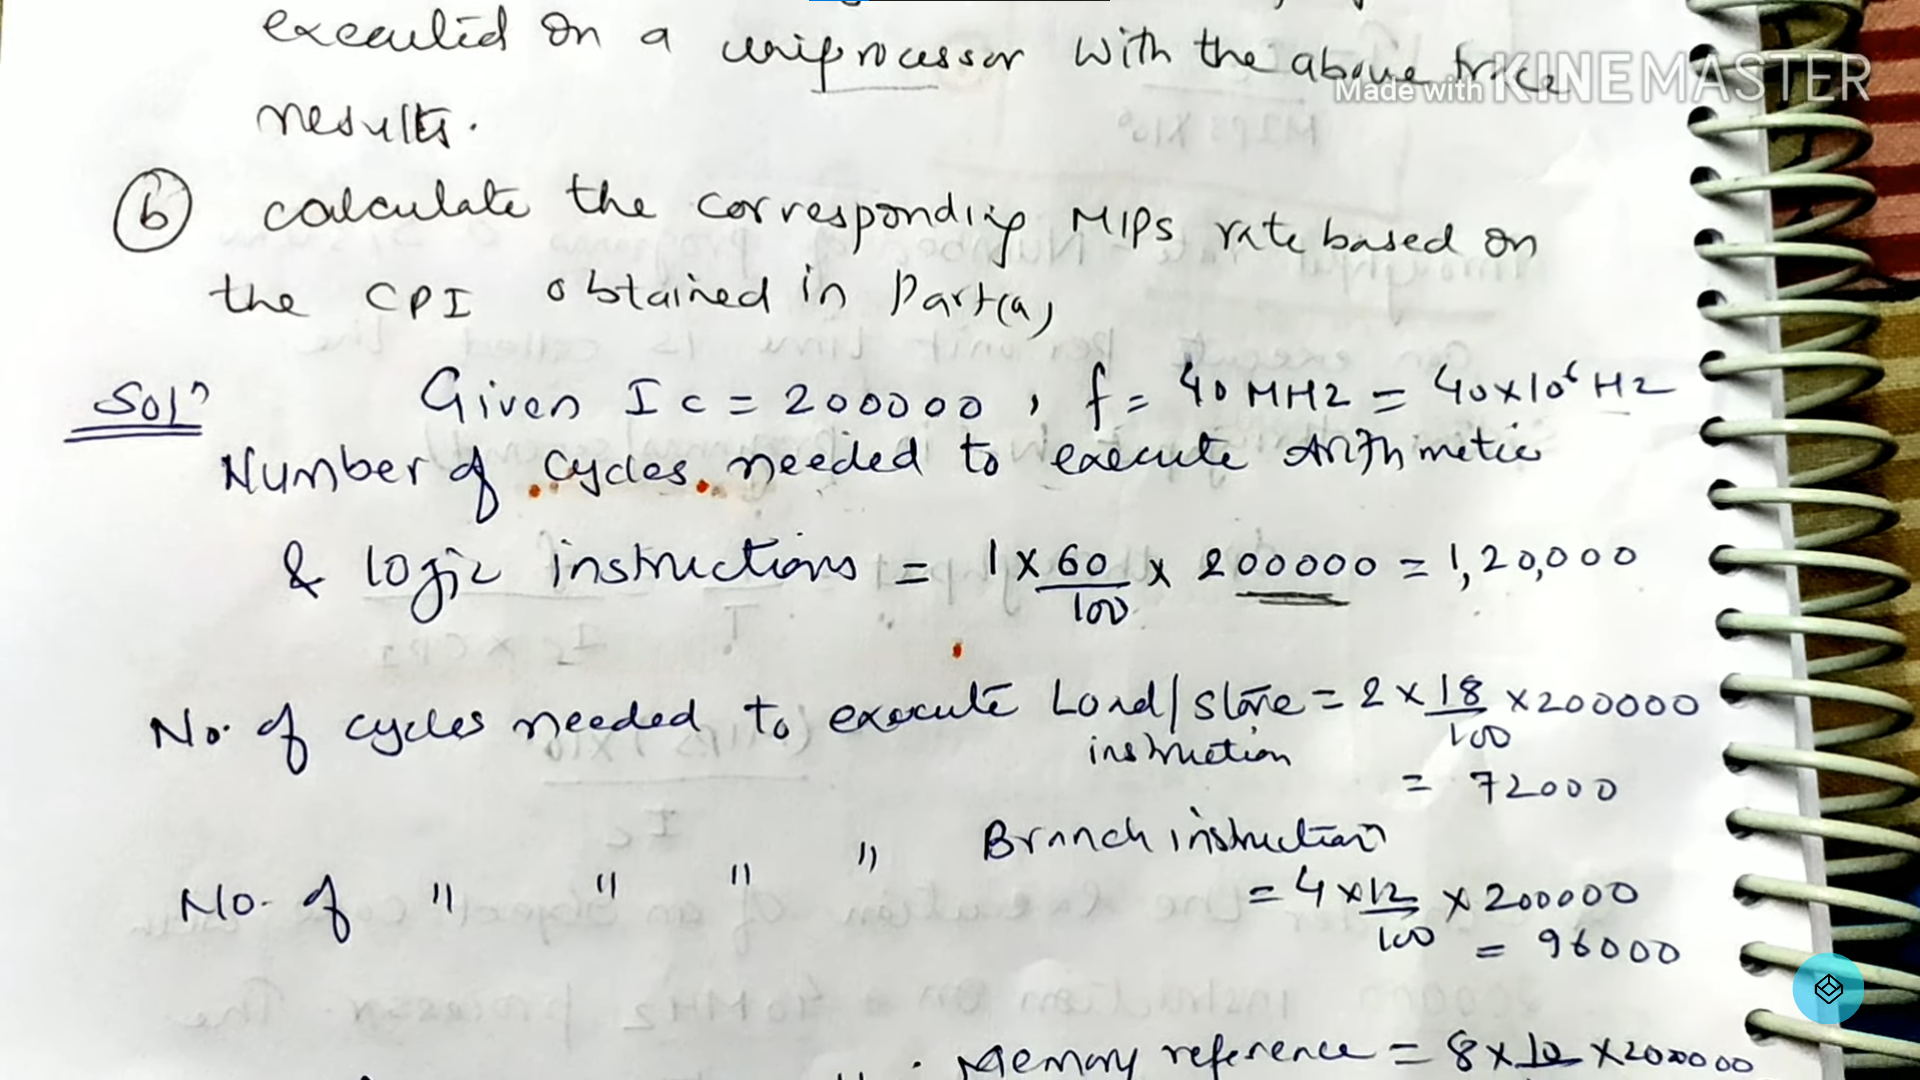 executed on a uniprocessor with the above trace
results.
Made with KINEMASTER
(b) calculate the corresponding MIPS rate based on
the CPI obtained in Part(a)
Solⁿ Given Ic = 200000, f = 40 MHz = 40x10⁶ Hz
Number of cycles needed to execute Arithmetic
& logic instructions = 1 x 60/100 x 200000 = 1,20,000
No. of cycles needed to execute Load/Store = 2 x 18/100 x 200000
instruction
= 72000
No. of " " " " Branch instruction
= 4 x 12/100 x 200000
= 96000
Memory reference = 8 x 10 x 200000